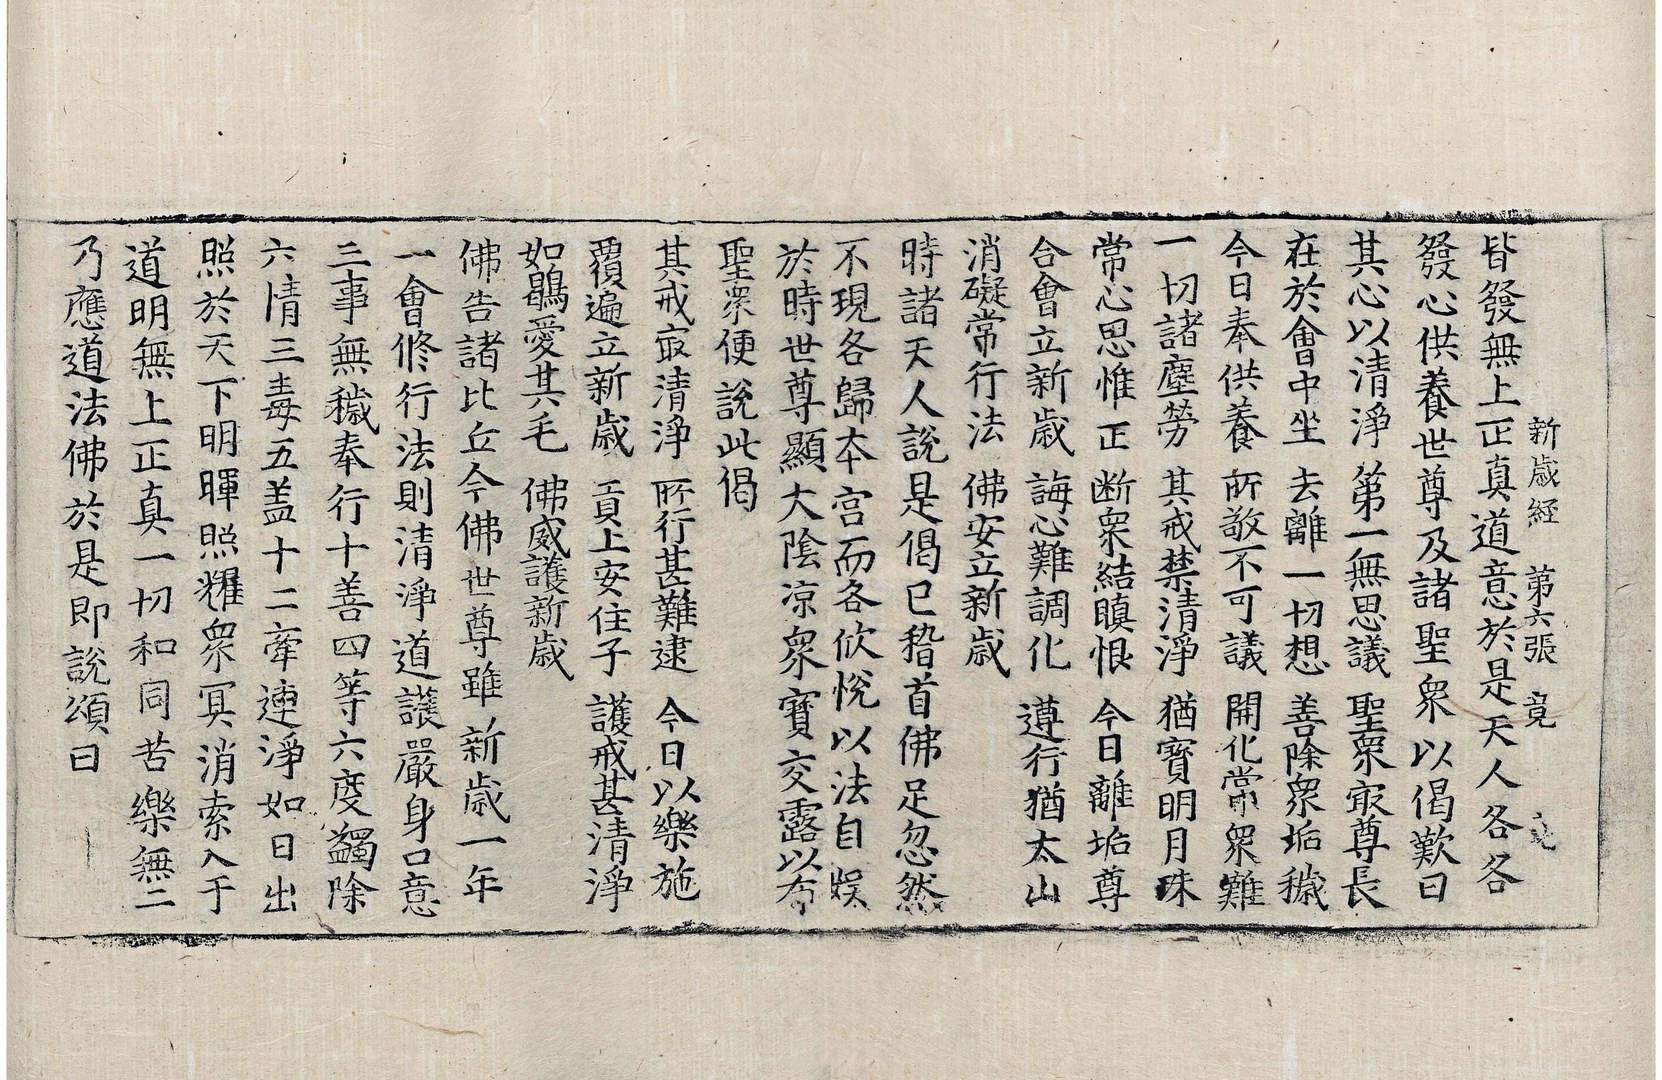 新歲経 第六張 竟
皆發無上正真道意於是天人各各
發心供養世尊及諸聖衆以偈歎曰
其心以清淨 第一無思議 聖衆㝡尊長
在於會中坐 去離一切想 善除衆垢穢
今日奉供養 所敬不可議 開化當衆難
一切諸塵勞 其戒禁清淨 猶寶明月珠
常心思惟正 断衆結瞋恨 今日離垢尊
合會立新歲 誨心難調化 遵行猶太山
消礙常行法 佛安立新歲
時諸天人說是偈已稽首佛足忽然
不現各歸本宮而各欣悅以法自娛
於時世尊顯大陰涼衆寶交露以布
聖衆便說此偈
其戒㝡清淨 所行甚難逮 今日以樂施
覆遍立新歲 貢上安住子 護戒甚清淨
如鶡愛其毛 佛威護新歲
佛告諸比丘今佛世尊雖新歲一年
一會修行法則清淨道護嚴身口意
三事無穢奉行十善四等六度蠲除
六情三毒五盖十二牽連淨如日出
照於天下明暉照耀衆冥消索入于
道明無上正真一切和同苦樂無二
乃應道法佛於是即說頌曰